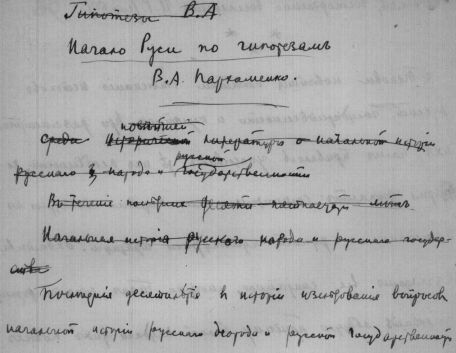 Гипотезы В.А
Начало Руси по гипотезамъ
В.А. Пархоменко.
новѣйшей
среди исторической литературы о начальной исторіи
русской
русскаго народа и государственности
Въ теченіе послѣднихъ десяти лѣтъ
Начальная исторія русскаго народа и русскаго государ-
ства
Послѣднія десятилѣтія въ исторіи изслѣдованія вопросовъ
начальной исторіи русскаго народа и русской государственности